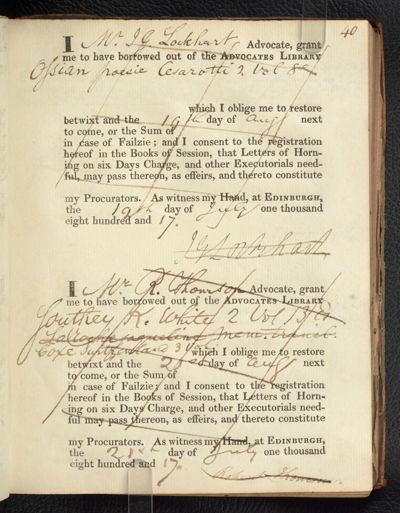 40
I Mr. J G Lockhart, Advocate, grant
me to have borrowed out of the ADVOCATES LIBRARY
Ossian poesie Cesarotti 2 Vol 8
which I oblige me to restore
betwixt and the 19th day of Augt next
to come, or the Sum of
in case of Failzie; and I consent to the registration
hereof in the Books of Session, that Letters of Horn-
ing on six Days Charge, and other Executorials need-
ful, may pass thereon, as effeirs, and thereto constitute
my Procurators. As witness my Hand, at EDINBURGH,
the 19th day of July one thousand
eight hundred and 17.
J G Lockhart
I Mr. R. Thomson Advocate, grant
me to have borrowed out of the ADVOCATES LIBRARY
Southey K. White 2 Vol
mem.
Coxe Switzerland 3 Vol
which I oblige me to restore
betwixt and the day of Augt next
to come, or the Sum of
in case of Failzie; and I consent to the registration
hereof in the Books of Session, that Letters of Horn-
ing on six Days Charge, and other Executorials need-
ful, may pass thereon, as effeirs, and thereto constitute
my Procurators. As witness my Hand, at EDINBURGH,
the day of July one thousand
eight hundred and 17.
Thomson